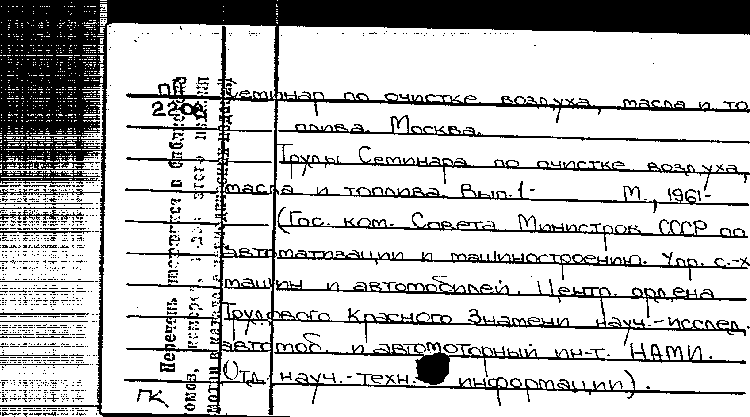 ПП
2208
Семинар по очистке воздуха, масла и то
плива. Москва.
Труды Семинара по очистке воздуха,
масла и топлива. Вып.1- М., 1961-
(Гос. ком. Совета Министров СССР по
автоматизации и машиностроению. Упр. с.-х
машин и автомобилей. Центр. ордена
Трудового Красного Знамени науч.-исслед.
автомоб. и автомоторный ин-т. НАМИ.
Отд. науч.-техн. информации).
ГК
Перечень имеющихся в библиотеке